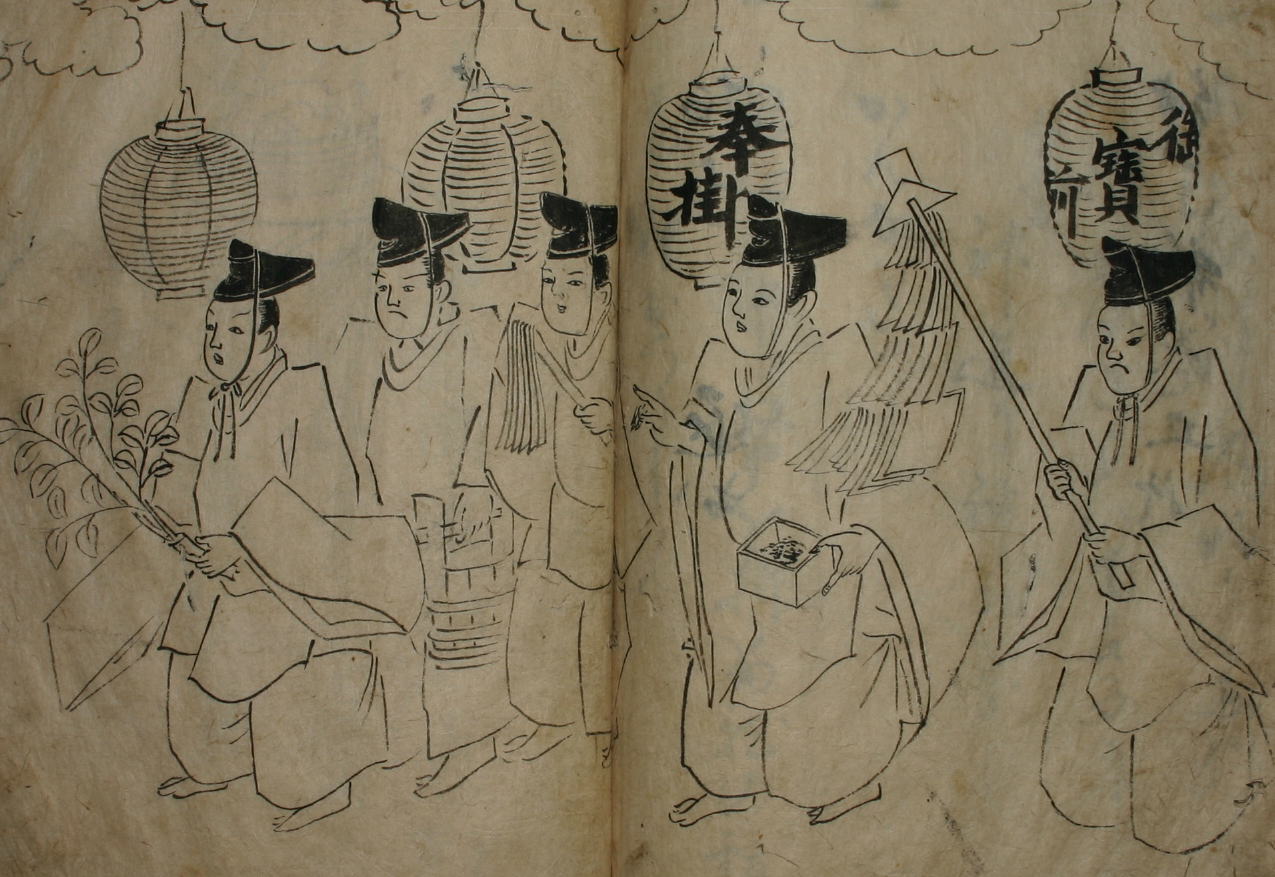 御寶前
奉掛